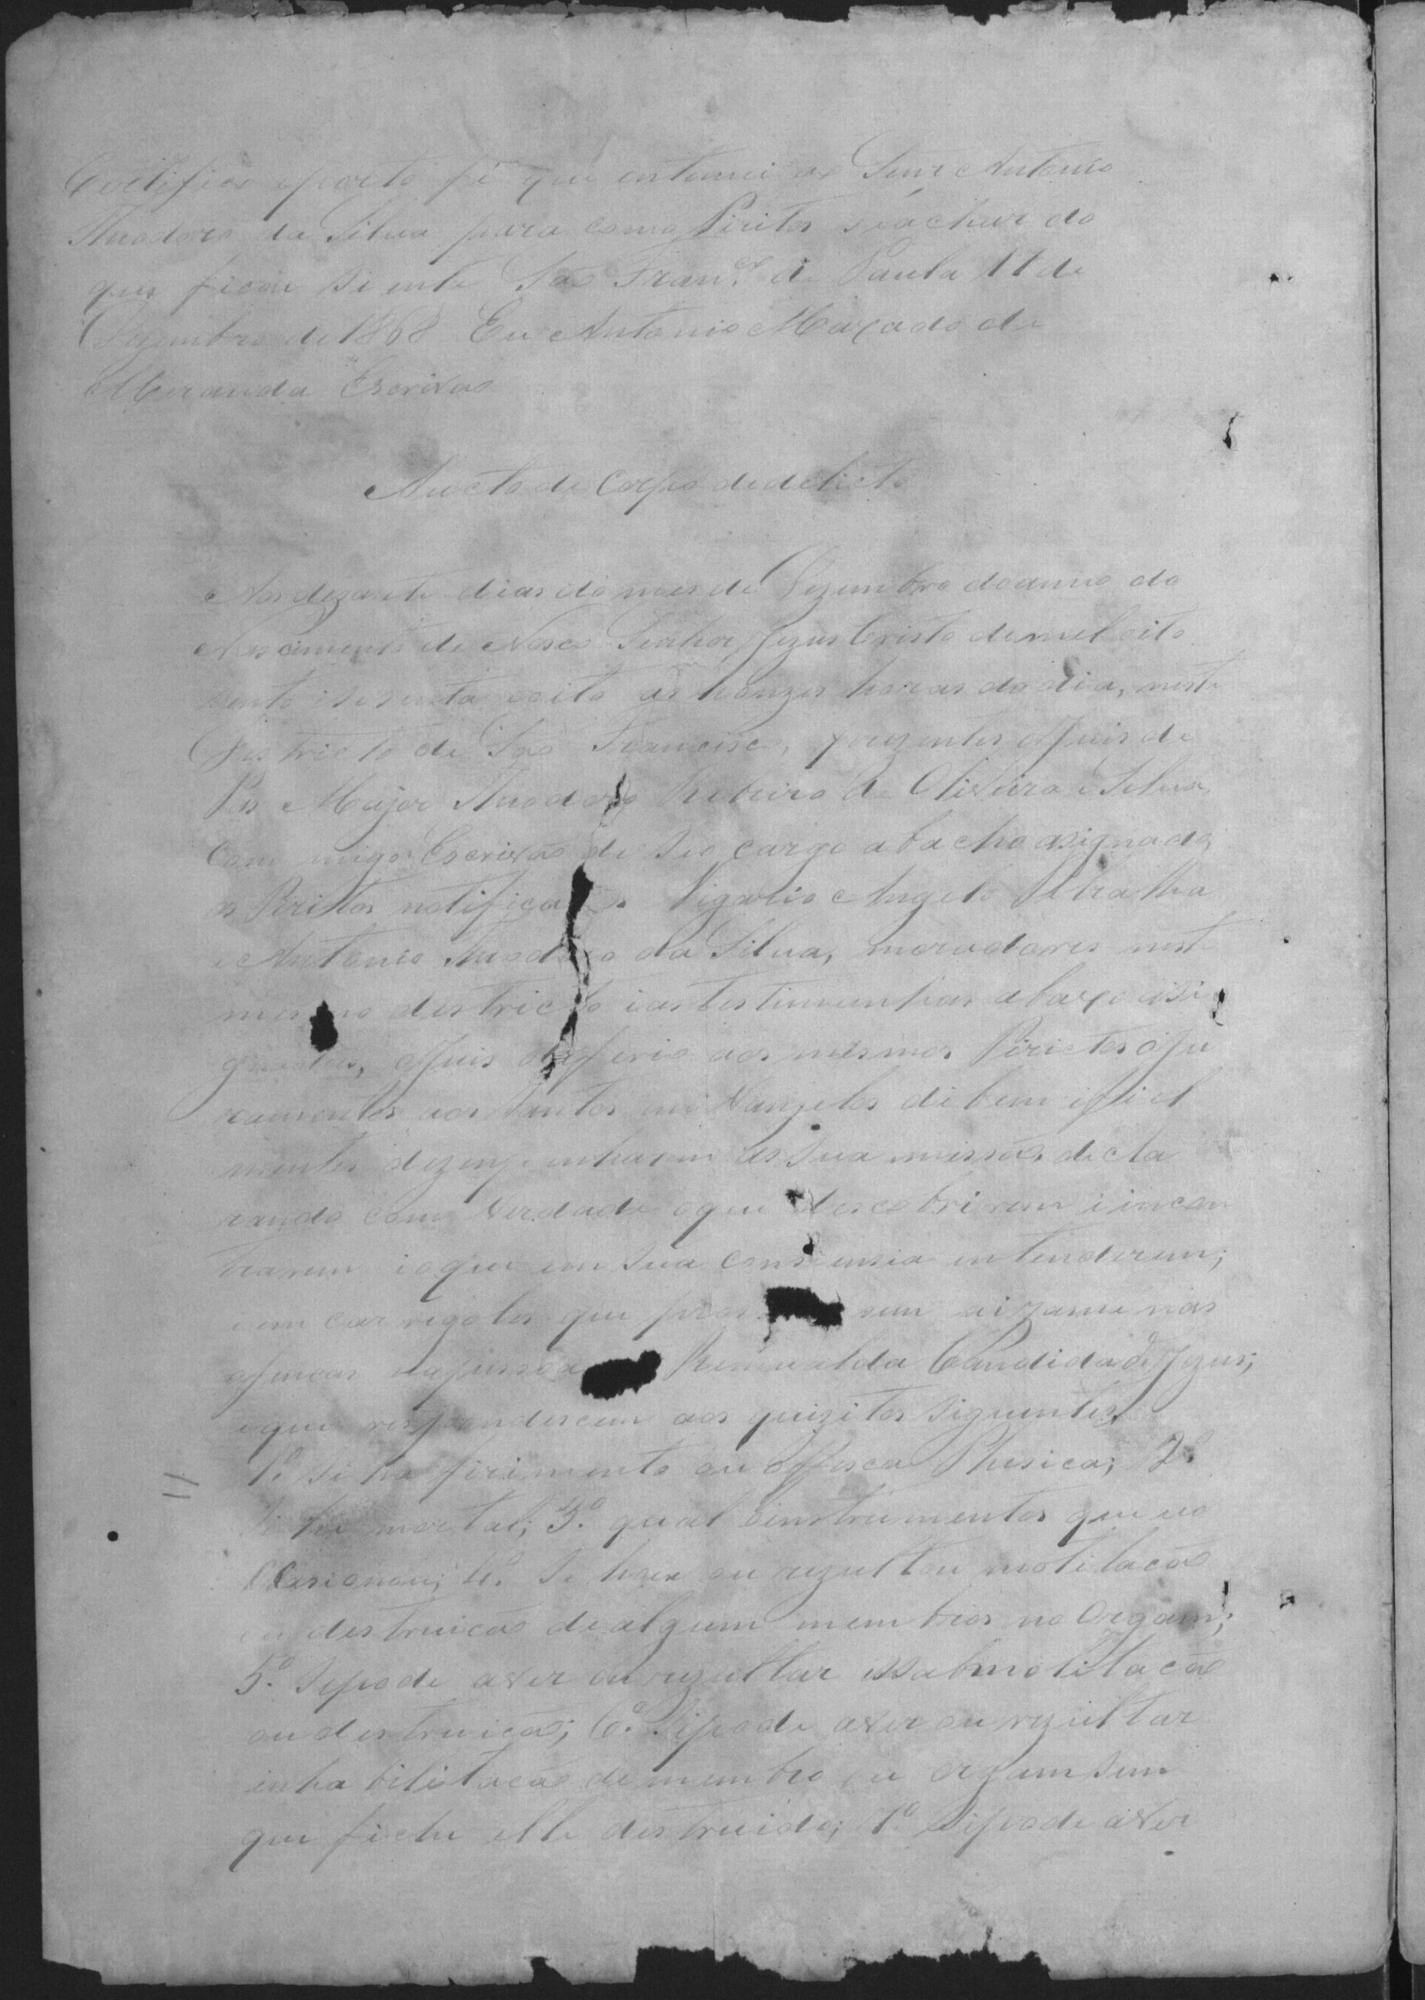 Certifico eporto fé que entemei ao Senr Antonio
Theodoro da Silva para como Piritos seachar do
que ficou siente São Fran.co de Paula 17 de
Dezembro de 1868 Eu Antonio Maxado de
Meranda Escrivão
Aucto de Corpo dedelicto
Aos dezasete dias do mes de Dezembro doanno do
Nascimento de Noso Senhor Jezus Cristo de mil oito
sento e sesenta eoito as honzes horas do dia, neste
Destricto de São Francisco, prezentes o Juis de
Pas Major Theodoro Ribeiro de Oliveira e Silva,
Com migo Escrivão de seo cargo abacho asignado,
os Piritos notificados Vigario Angelo
e Antonio Theodoro da Silva, moradores neste
mesmo destricto i as testimunhas abaxo asi
gnadas, o Juis deferio aos mesmos Pirictos o ju
ramentos aos Santos inVangelos de bem i fiel
mentes dezempenharem as sua missão, decla
rando com verdade oque descobrirem i incon
trarem i oque em sua consiensia entenderem;
eem car regoles que prosedesem
Remualda Candida de Jezus;
eque respondesem aos quizitos siguintes
1º si ha firimento ou offesca Phesica; 2º
Si he mortal; 3º. qual o instrumentos que uo
Ocasionou; 4º. Si have ou rezultou motilacão
ou destruicão de algum membros no Orgam;
5º. Sipode aver ou rezultar essa motilacão
ou destruicão; 6º. Sipode aver ou rezultar
inhabilitacão de membro ou orgam sem
que fiche elle destruido; 7º Sipode aver